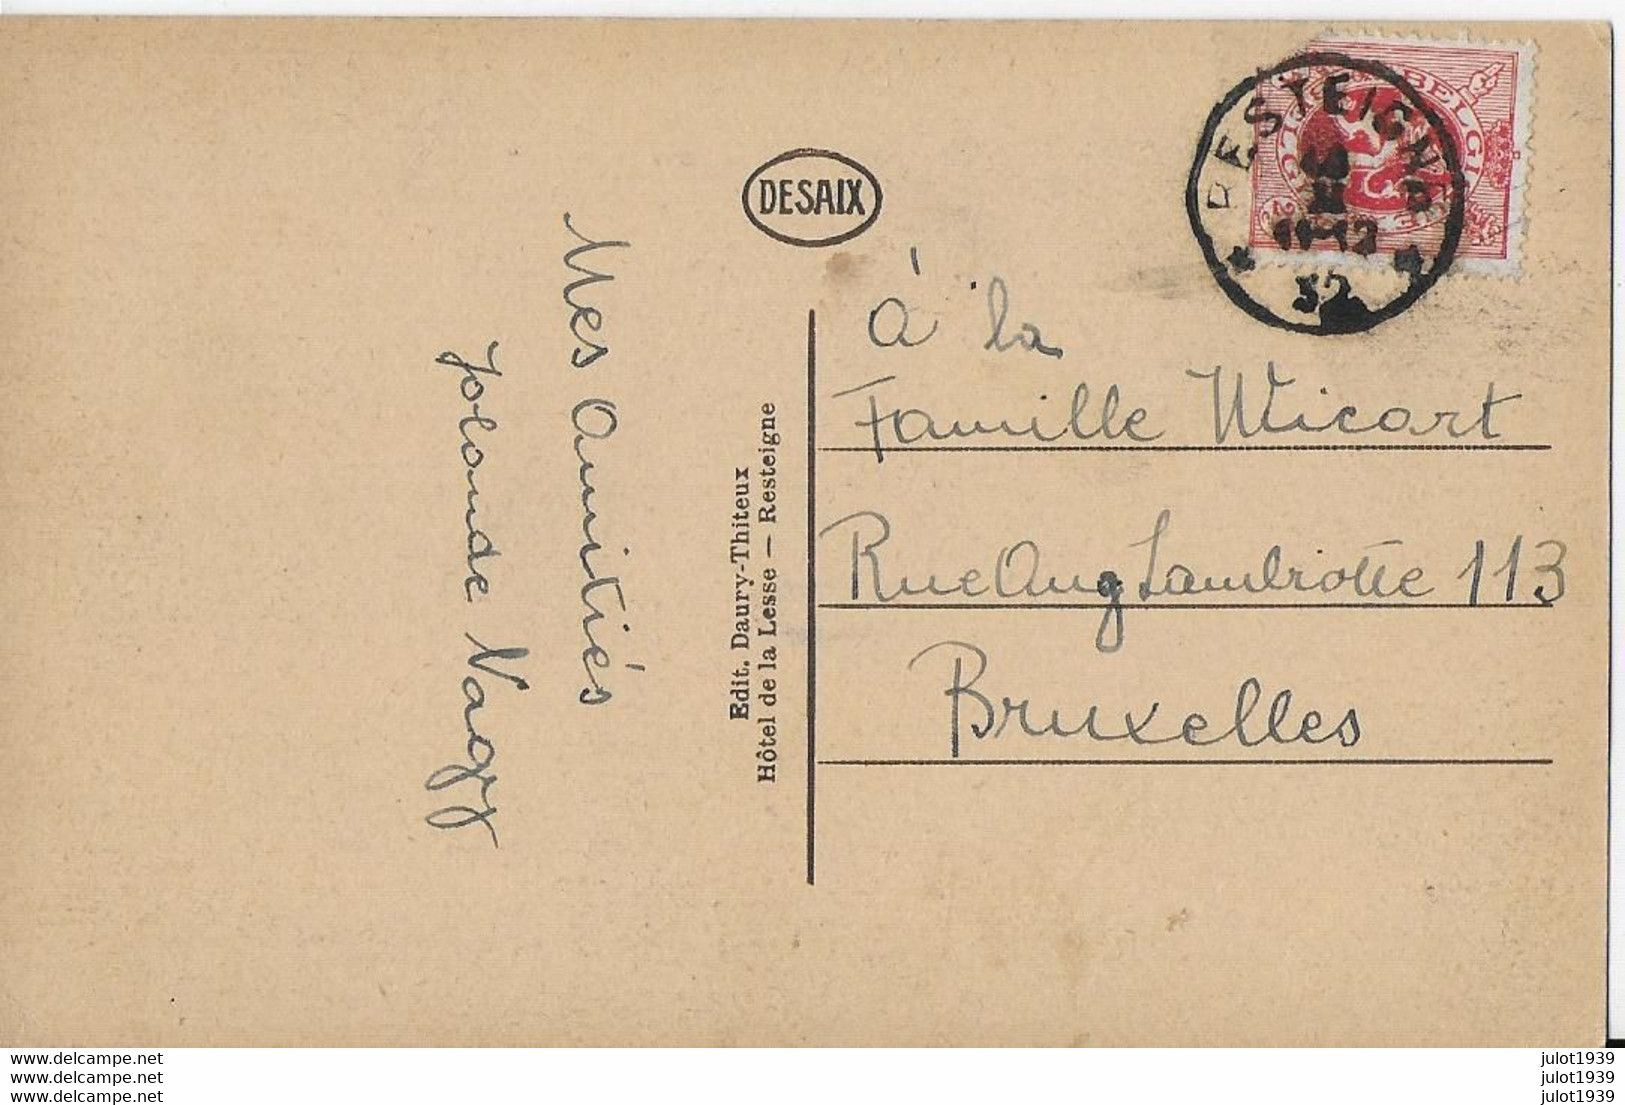 Mes Amitiés
Jolande Nagy
Edit. Daury-Thiteux
Hôtel de la Lesse — Resteigne
DESAIX
RESTEIGNE
11-12
32
BELGIE
à la
Famille Wicart
Rue Aug Lambiotte 113
Bruxelles
www.delcampe.net
www.delcampe.net
www.delcampe.net
julot1939
julot1939
julot1939